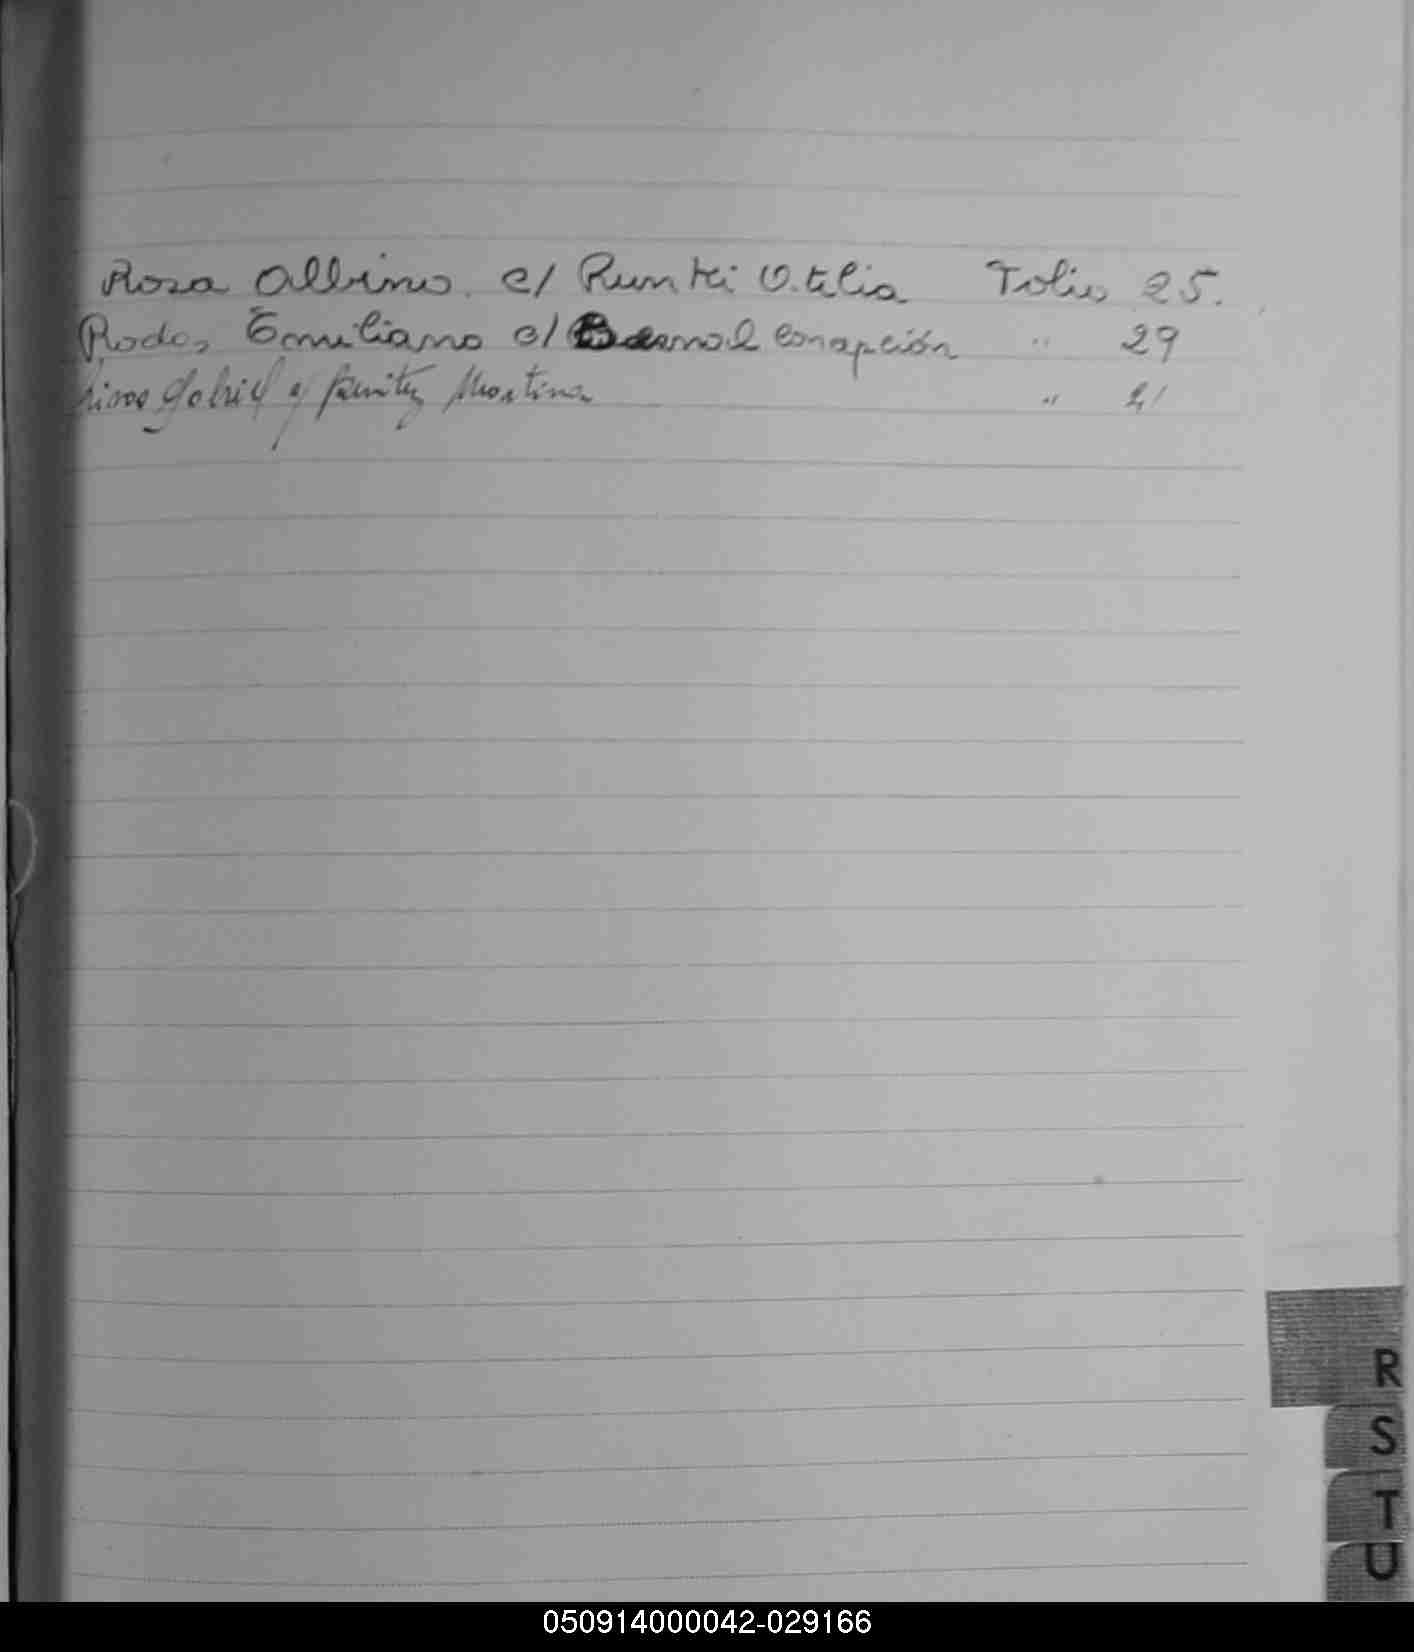 Rosa Albino c/ Runtti Otilia Folio 25.
Rodas Emiliano c/ Bernal Conapción " 29
Gabriel c/ Benitez Martina "
R
S
T
U
050914000042-029166